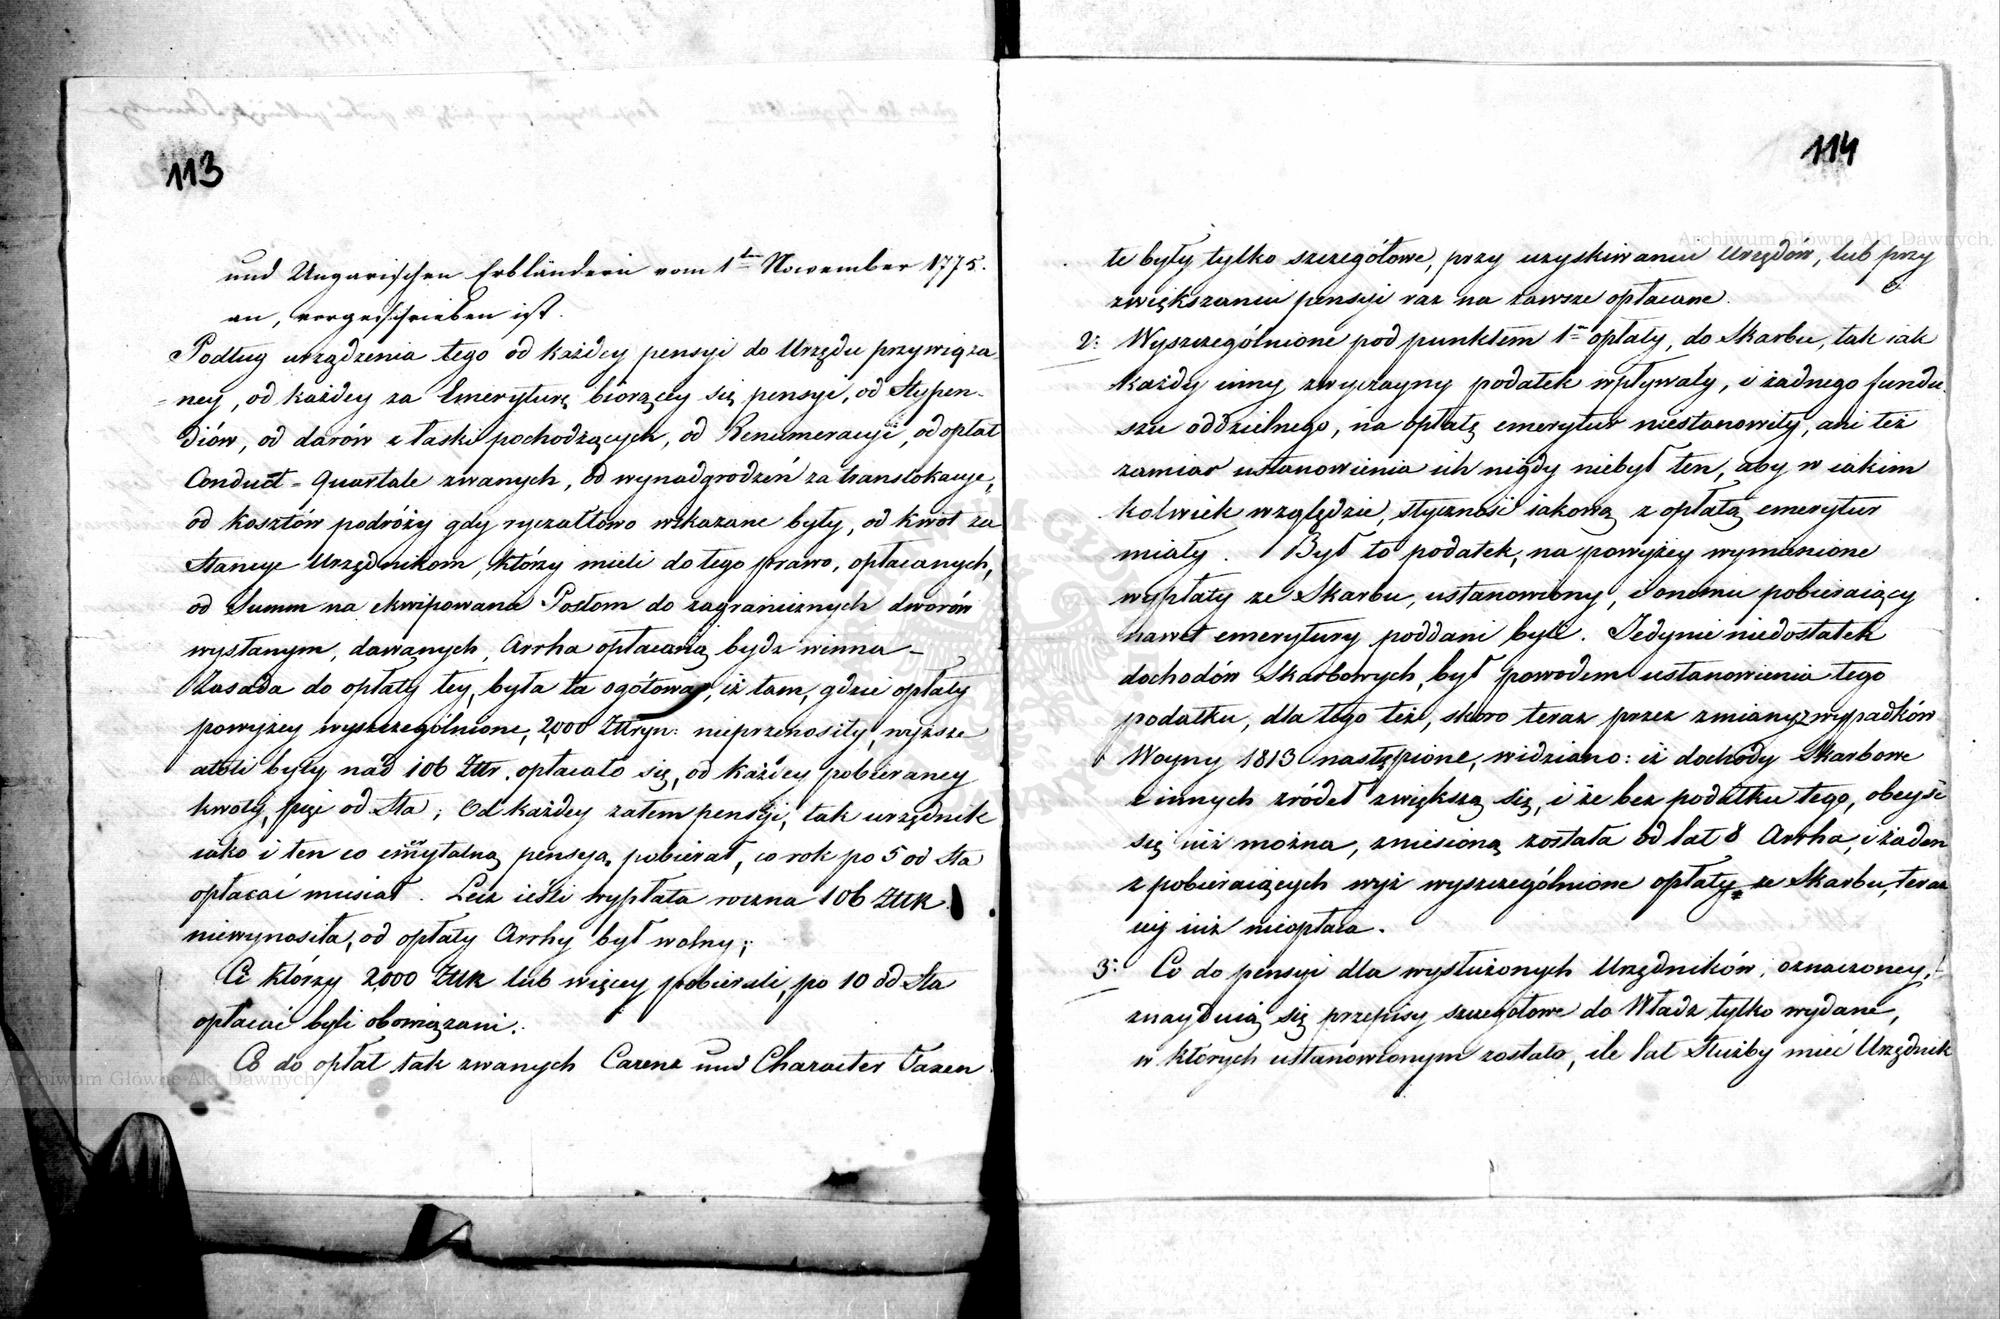 113
und Ungarischen Erbländern vom 1ten November 1775.
an, vorgeschrieben ist.
Podług urządzenia tego od każdey pensyi do Urzędu przywiąza
ney, od każdey za Emeryturę biorzęcey się pensyi, od Stypen-
diów, od darów z łaski pochodzących, od Renumeracyi, od opłat
Conduct-Quartale zwanych, od wynadgrodzeń za translokacye,
od kosztów podróży gdy ryczałtowo wskazane były, od kwot za
Stancye Urzędnikom, którzy mieli do tego prawo, opłacanych,
od Summ na ekwipowanie Posłom do zagranicznych dworów
wysłanym, dawanych, Arrha opłacaną bydź winna –
Zasada do opłaty tey, była ta ogółowa, iż tam, gdzie opłaty
powyżey wyszczególnione, 2,000 Ztryn: nieprzenosiły, wyższe
atoli były nad 106 Ztr. opłacało się, od każdey pobieraney
kwoty, pięć od Sta; Od każdey zatem pensyi, tak urzędnik
iako i ten co emytalną pensyą pobierał, co rok po 5 od Sta
opłacać musiał. Lecz ieśli wypłata roczna 106 Ztrk
niewynosiła, od opłaty Arrhy był wolny;
Ci którzy 2,000 Ztrk lub więcey pobierali, po 10 od Sta
opłacać byli obowiązani.
Co do opłat tak zwanych Carenz und Character Taxen
114
te były tylko szczegółowe, przy uzyskiwaniu Urzędów, lub przy
zwiększaniu pensyi raz na zawsze opłacane.
2: Wyszczególnione pod punktem 1m opłaty, do Skarbu, tak iak
każdy inny zwyczayny podatek wpływały, i żadnego fundu
szu oddzielnego, na opłatę emerytur niestanowiły, ani też
zamiar ustanowienia ich nigdy niebył ten, aby w iakim
kolwiek względzie, styczność iakową z opłatą emerytur
miały. Był to podatek, na powyżey wymienione
wypłaty ze Skarbu, ustanowiony, i onemu pobieraiący
nawet emerytury poddani byli. Jedynie niedostatek
dochodów Skarbowych, był powodem ustanowienia tego
podatku, dla tego też, skoro teraz przez zmiany z wypadków
Woyny 1813 nastąpione, widziano: iż dochody Skarbowe
z innych źródeł zwiększą się, i że bez podatku tego, obeyść
się iuż można, zniesioną została od lat 8 Arrha, i żaden
z pobieraiących wyż wyszczególnione opłaty ze Skarbu, teraz
iey iuż nieopłaca.
3: Co do pensyi dla wysłużonych Urzędników, oznaczoney,
znayduią się przepisy szczegółowe do Władz tylko wydane,
w których ustanowionym zostało, ile lat Służby mieć Urzędnik
Archiwum Główne Akt Dawnych
Archiwum Główne Akt Dawnych